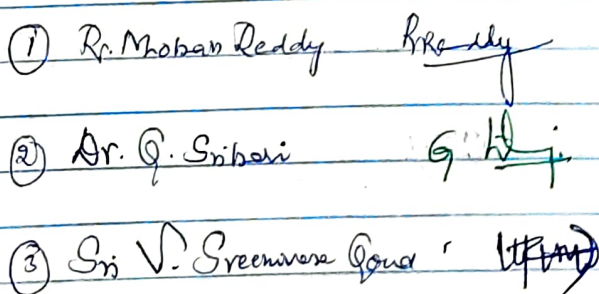 ① R. Mohan Reddy RReddy
② Dr. G. Srihari G.
③ Sri V. Sreenivasa Goud